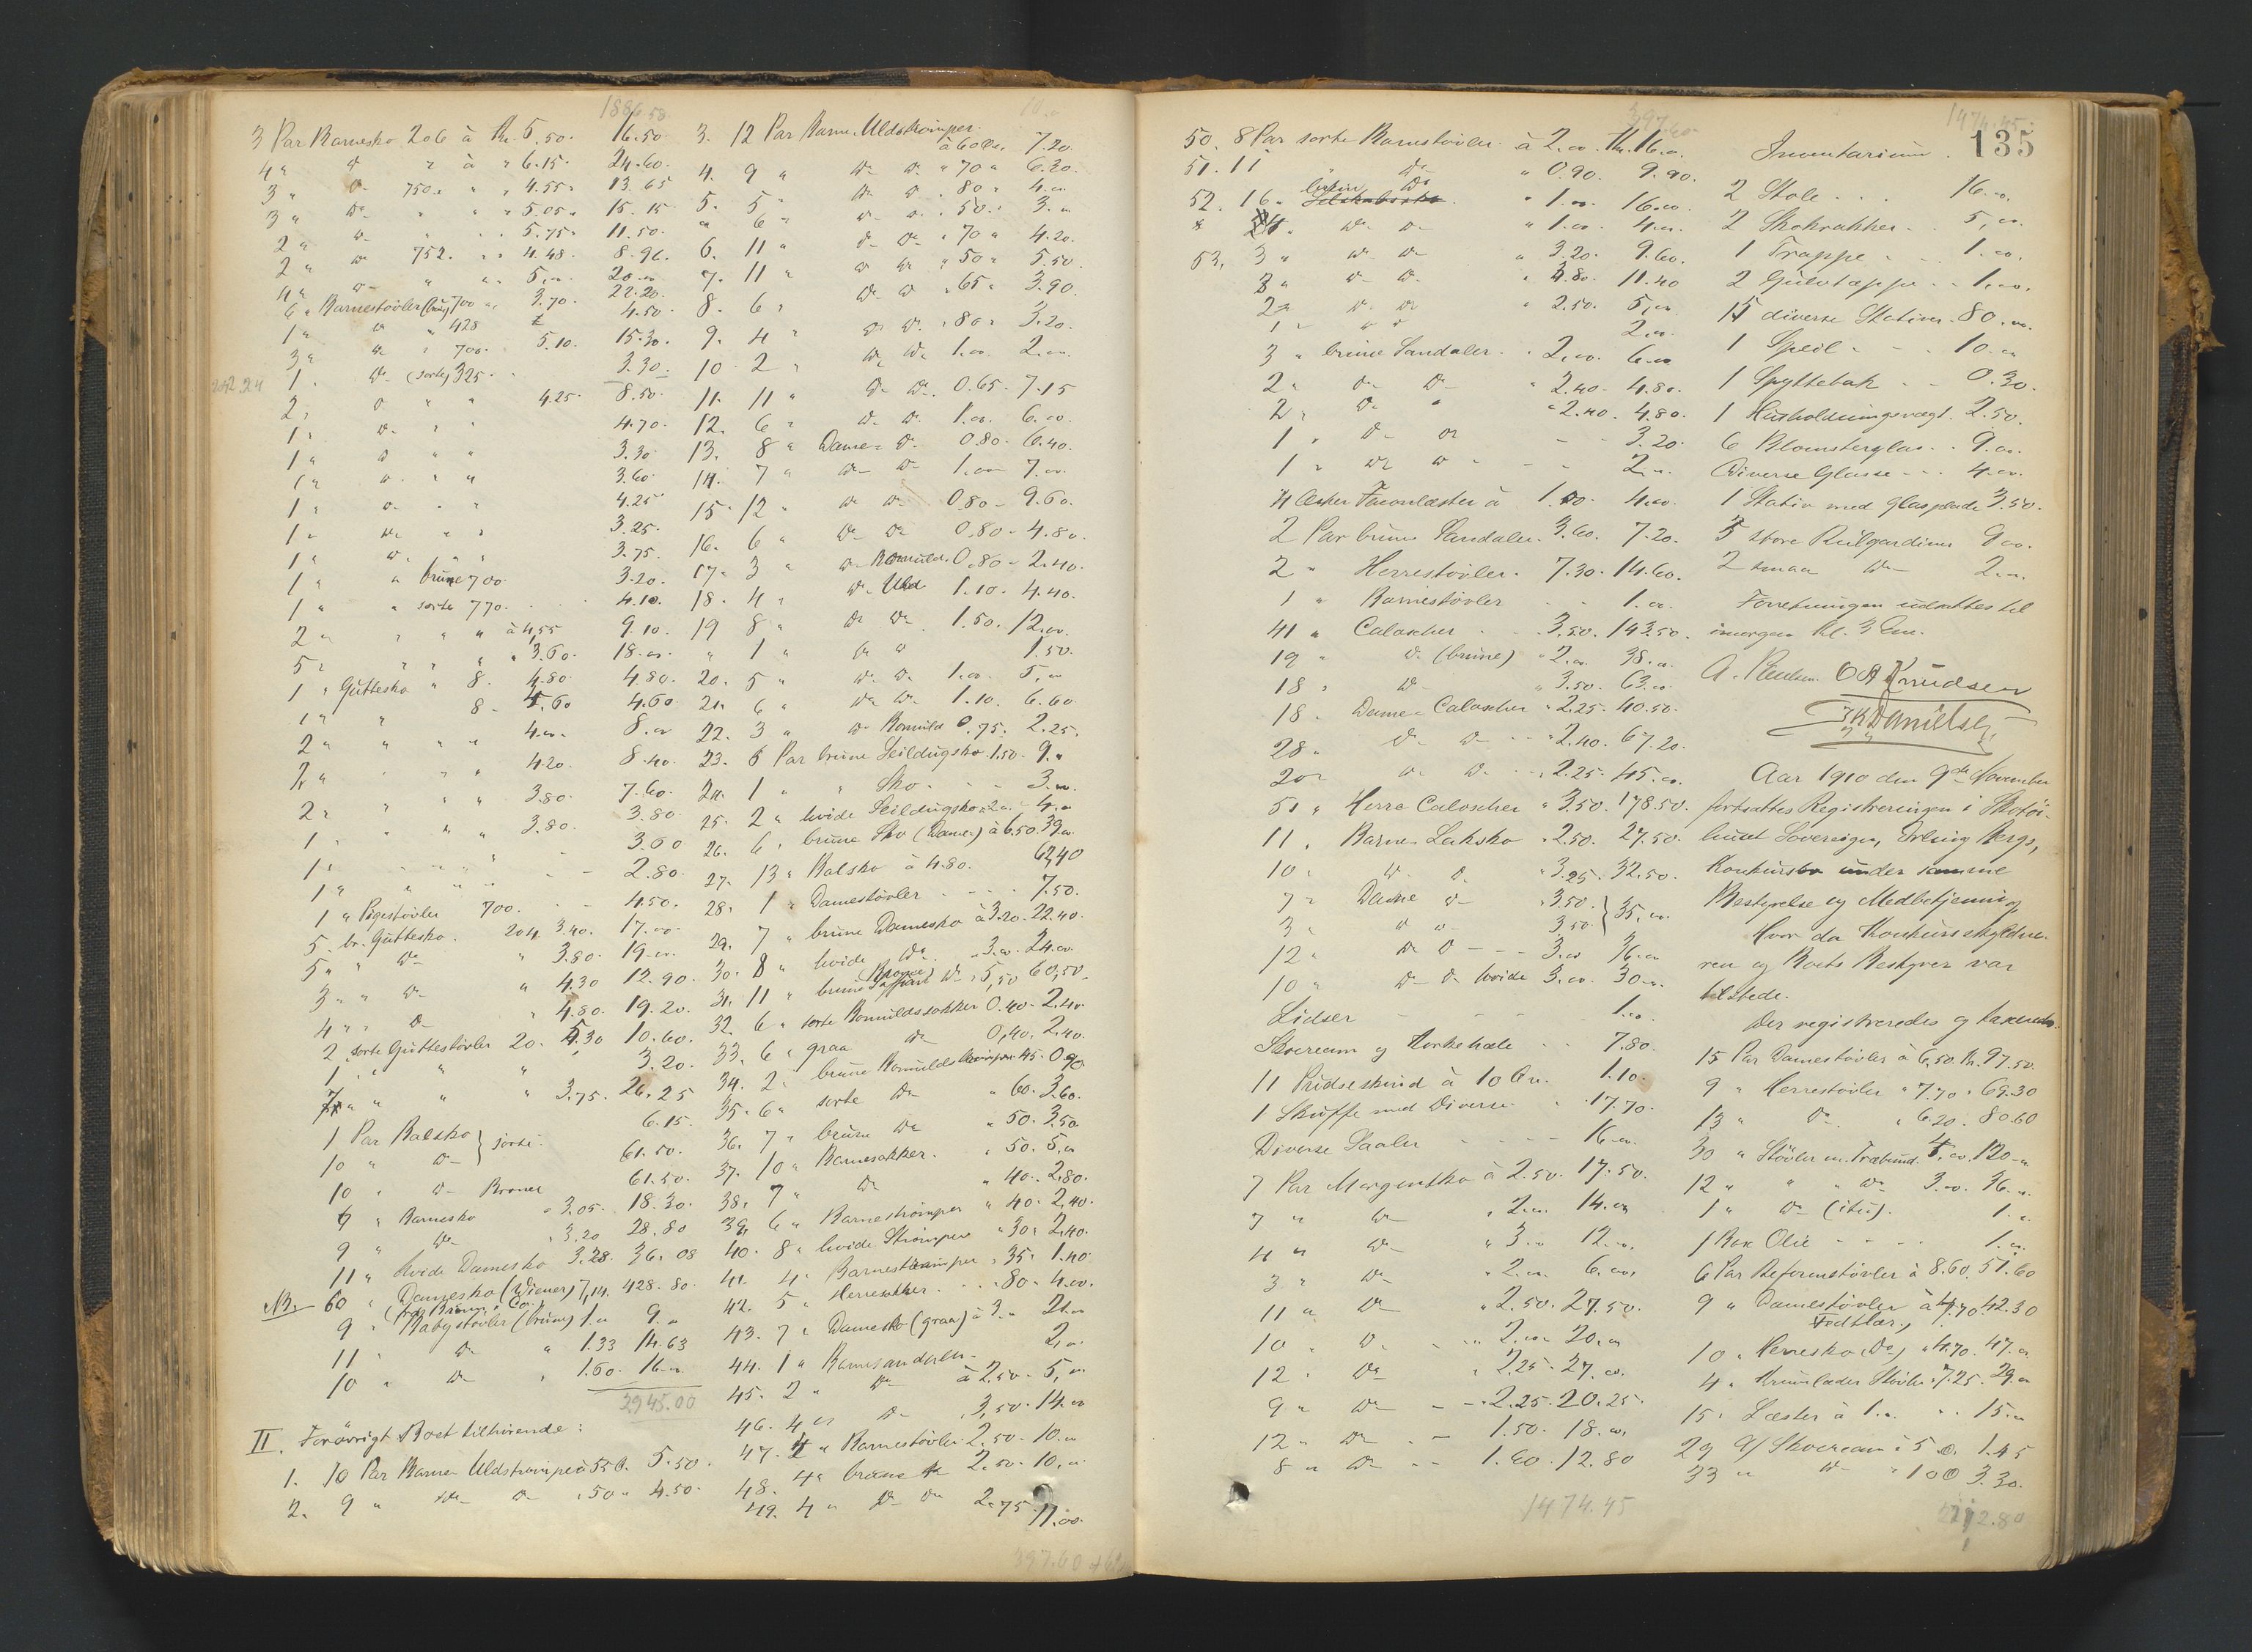 1886.50
3 Par Barnesko 206 à Kr. 5.50. 16.50
4 " do " à " 6.15. 24.60.
3 " do 750. " " 4.55. 13.65
3 " do " " " 5.05. 15.15
2 " do " " " 5.75. 11.50.
2 " do 752. " " 4.48. 8.96.
4 " do " " " 5,00. 20.00
6 " Barnestøvler (brune) 700 " 3.70. 22.20.
1 " do " 428 4.50.
3 " do " 700. 5.10. 15.30.
1 " do (sorte) 325. 3.30.
2 " do " " 4.25. 8.50.
1 " do " " 4.70.
1 " do " " 3.30
1 " do " " 3.60
1 " do " " 4.25
1 " do " " 3.25.
1 " do " " 3.75.
1 " " brune 700. 3.20.
1 " " sorte 770. 4.10.
2 " " " " à 4,55 9.10.
5 " " " " " 3.60. 18.00.
1 " Guttesko " 8. 4.80 4.80.
1 " " 8. 4.60 4.60
2 " " " " 4.00. 8.00
2 " " " " 4.20. 8.40.
2 " " " " 3.80. 7.60.
1 " " " " 3.80. 3.80
1 " " 3.60
1 " " 2.80.
1 " Pigestøvler 700. 4.50.
5. br. Guttesko. 204. 3.40. 17.00.
5 " " do " 3.80. 19.00.
3 " " do " 4.30 12.90.
4 " " do " 4.80. 19.20.
2 sorte Guttestøvler 20. 5.30 10.60.
1 " " " 3.20.
7 " " " " 3.75. 26.25
1 Par Balsko } sorte. 6.15.
10 " do 61.50.
10 " do Bronce 61.50.
6 " Barnesko " 3.05. 18.30.
9 " do " 3.20 28.80
11 " hvide Damesko 3.28. 36.08
NB. 60 " Damesko (Wiener) 7,14. 428.80.
9 " Babystøvler (brune) 1.00 9.00
11 " do " 1.33 14.63
10 " do " 1.60. 16.00
2945.00
II. Forøvrigt Boet tilhørende:
1. 10 Par Barne Uldstrømper à 55 Ø. 5.50.
2. 9 " do do " 50 " 4.50.
3. 12 Par Barne Uldstrømper.
à 60 Øre 7.20.
4. 9 " do do " 70 " 6.30.
5. 5 " do do " 80 " 4.00
" 6 " do do " 50 " 3.00
6. 11 " do do " 70 " 4.20.
7. 11 " do do " 50 " 5.50.
8. 6 " do do " 65 " 3.90.
9. 4 " do do " 80 " 3.20.
10. 2 " do do 1.00. 2.00.
11. 11 " do do 0.65. 7.15
12. 6 " do do 1.00. 6.00.
13. 8 " Dame " do 0.80. 6.40.
14. 7 " do do 1.00 7.00.
15. 12 " do do 0.80 - 9.60.
16. 6 " do do 0.80 - 4.80.
17. 3 " do Bomulds. 0.80 - 2.40.
18. 4 " do Uld. 1.10. 4.40.
19 8 " do do 1.50. 12.00.
" 1 " do do 1.50.
20. 5 " do do 1.00. 5,00
21. 6 " do do 1.10. 6.60
22. 3 " do Bomulds 0.75. 2.25.
23. 6 Par brune Seildugsko 1.50. 9.00
24. 1 " " Sko. 3.00.
25. 2 " hvide Seildugsko 2.00 4.00
26. 6 " brune Sko (Dame) à 6.50. 39.00
27. 13 " Balsko à 4.80. 62,40
28. 1 " Damestøvler 7.50.
29. 7 " brune Damesko à 3.20. 22.40.
30. 8 " hvide do " 3.00. 24.00.
31. 11 " brune do " 5,50 60,50.
32. 6 " sorte Bomuldssokker 0.40. 2.40.
33. 6 " graa do 0,40. 2.40.
34. 2 " brune Bomuldstrømper 45. 0.90
35. 6 " sorte do " 60. 3.60.
36. 7 " brune do " 50. 3.50
37. 10 " Barnesokker. " 50. 5,00
38. 7 " do " 40. 2.80.
39. 6 " Barnestrømper " 40. 2,40.
40. 8 " hvide Strømper " 30. 2.40.
41. 4 " Barnestrømper " 35. 1.40
42. 5 " Herresokker. " 80. 4.00.
43. 7 " Damesko (graa) à 3.00 21.00
44. 1 " Barnesandaler 2,00.
45. 2 " do à 2.50. 5,00
46. 4 " do 3,50. 14.00
47. 4 " Barnestøvler 2.50. 10.00
48. 4 " brune do 2.50. 10,00
49. 4 " do do 2.75 11.00.
397.60
397.60
50. 8 Par sorte Barnestøvler. à 2.00. Kr. 16.00.
51. 11 do " 0.90. 9.90.
52. 16 " do " 1.00. 16.00
" 4 " do do " 1.00. 4.00.
53, 3 " do do " 3.20. 9.60.
3 " do do " 3.80. 11.40
2 " do do " 2.50. 5,00
1 " do do 2.00.
3 " brune Sandaler. " 2.00. 6.00
2 " do do " 2.40. 4.80.
2 " do " " 2.40. 4.80.
1 " do do 3.20.
1 " do do 2.00.
4 Æsker Faconlæster à 1.00. 4.00.
2 Par brune Sandaler. 3.60. 7.20.
2 " Herrestøvler. 7.30. 14.60.
1 " Barnestøvler 1.00.
41 " Caloscher 3.50. 143.50.
19 " do (brune) " 2.00. 38.00.
18 " do " 3.50. 63.00
18 " Dame " Calosher " 2.25. 40.50.
28 " do do " 2.40. 67.20.
20 " do do " 2.25. 45.00.
51 " Herre Caloscher " 3.50. 178.50.
11 " Barne Laksko " 2.50. 27.50.
10 " do do " 3.25. 32.50.
7 " Dame do " 3.50. } 35,00.
3 " do do 3.50
12 " do do 3.00 36.00
10 " do do hvide 3.00. 30.00.
Lidser 1.00.
Skocream og Korkehæle 7.80.
11 Pudseskind à 10 Øre. 1.10.
1 Skuffe med Diverse 17.70.
Diverse Saaler 16.00.
7 Par Morgensko à 2.50. 17.50.
7 " do " 2.00. 14.00
4 " do " 3.00 12.00.
3 " do " 2.00. 6.00.
11 " do " 2.50. 27.50.
10 " do " 2.00 20.00
12 " do " 2.25. 27.00.
9 " do " 2.25. 20.25.
12 " do 1.50. 18.00.
8 " do 1.60. 12.80
1474.45
1474.45
135
Inventarium.
2 Stole 16.00.
2 Skokrakker 5,00.
1 Trappe 1.00.
2 Gulvtæppe 1.00.
15 diverse Stativer. 80.00.
1 Speil 10.00
1 Spyttebak 0.30.
1 Husholdningsvægt. 2.50.
6 Blomsterglas 9.00.
Diverse Glasse 4.00.
1 Stativ med Glasplade 3.50.
3 store Rulgardiner 9.00.
2 smaa do 2.00.
Forretningen udsattes til
imorgen Kl. 3 Em.
O A Knudsen
Danielsen
Aar 1910 den 9de November
fortsattes Registreringen i Skotøi-
huset Sovereign, Erling Bergs,
Konkursbo under samme
Bestyrelse og Medbetjening
Hvor da Konkursskyldne-
ren og Boets Bestyrer var
tilstede.
Der registreredes og taxeredes:
15 Par Damestøvler à 6.50. Kr. 97.50
9 " Herrestøvler " 7.70. 69.30
13 " do " 6.20. 80.60
30 " Støvler m. Træbund. 4.00. 120.00
12 " " " do 3.00. 36.00.
1 " do (itu). 1.00.
1 Box Olie 1.00.
6 Par Reformstøvler à 8.60. 51.60
9 " Damestøvler à 4.70 42.30
10 " Herresko do " 4.70. 47.00
4 " Støvler 7.25. 29.00
15 " Læster à 1.00. 15.00
29 Gl Skocream à 5 Ø. 1.45
33 " do " 10 Ø 3.30.
2112.80